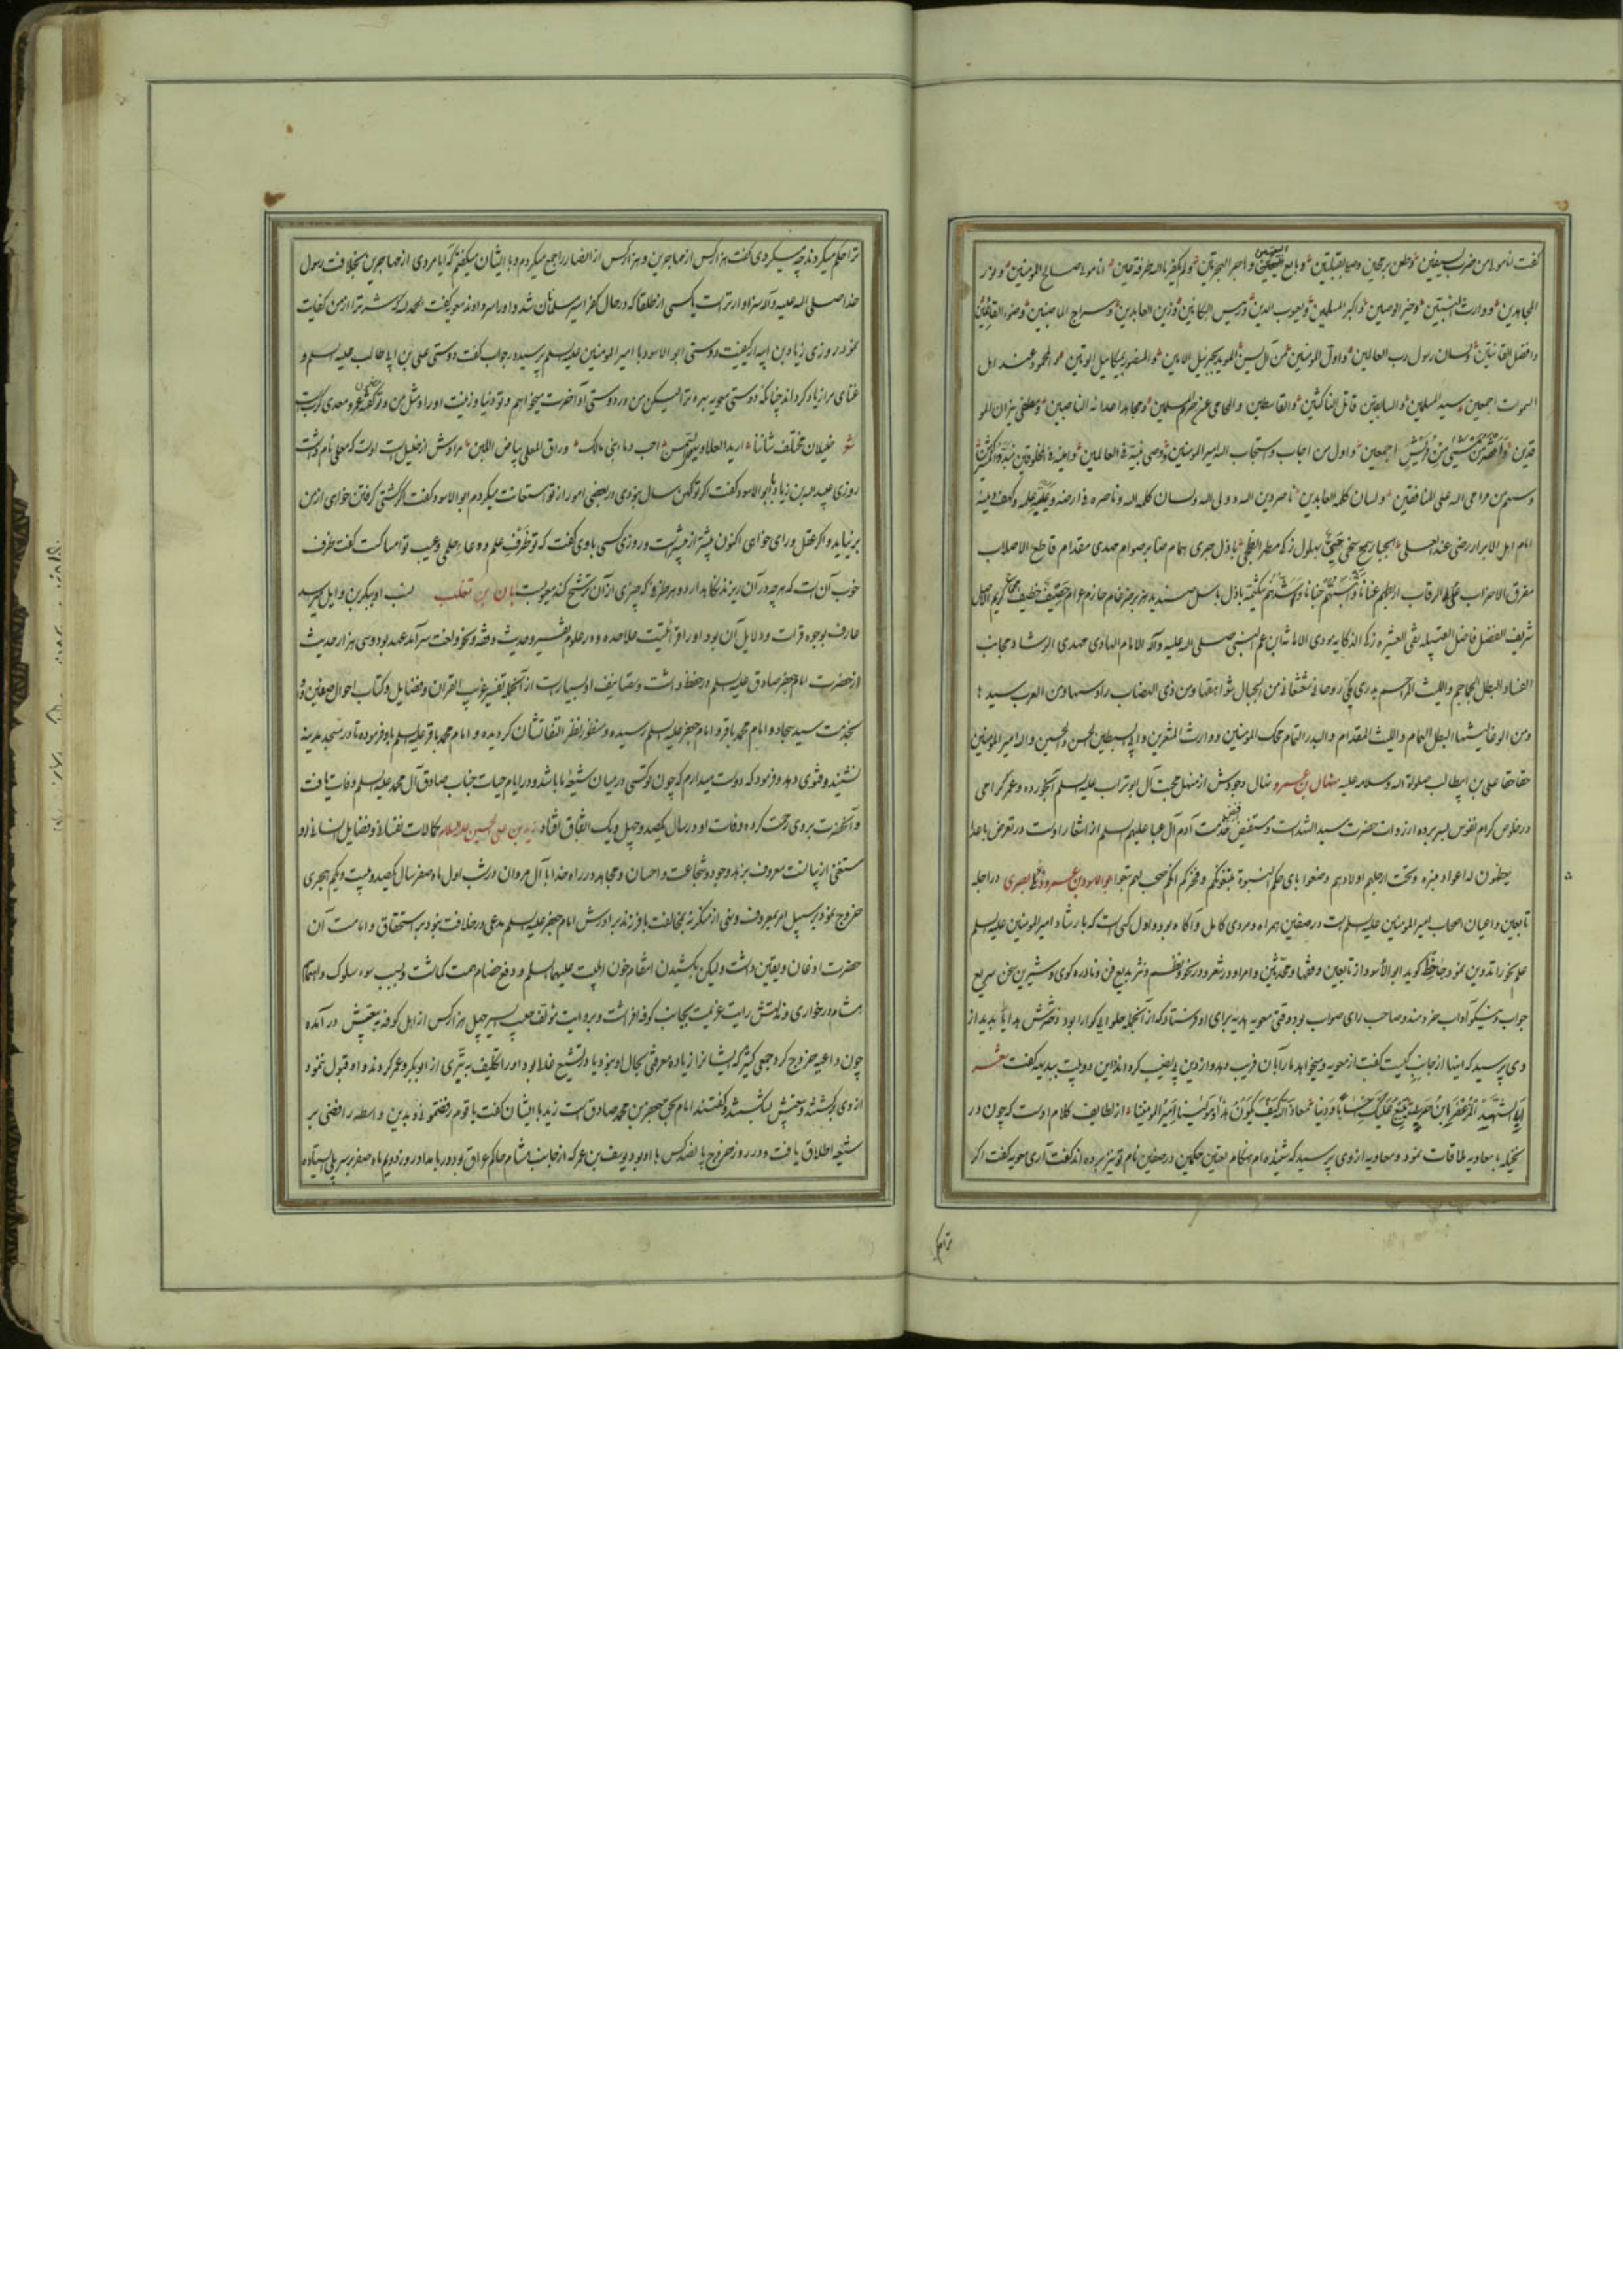 گفت انا مولا من ضرب بسیفین و طعن برمحین وصلی القبلتین و بایع البیعتین و هاجر الهجرتین و لم یکفر بالله طرفة عین انا مولا صالح المومنین و نور
المجاهدین و وارث النبیین و خیر الوصیین و اکبر المسلمین و یعسوب الدین و رئیس البکائین و زین العابدین و سراج الماضین و ضوء القائمین
و افضل القانتین و لسان رسول رب العالمین و اول المومنین من آل یسین الموید بجبرئیل الامین و المنصور بمیکائیل المتین و المحمود عند اهل
السموات اجمعین سید المسلمین و السابقین قاتل الناکثین و القاسطین و المحامی عن حرم المسلمین و مجاهد اعدائه الناصبین و مطفئ نیران المو
قدین و افخر من مشی من قریش اجمعین و اول من اجاب و استجاب لله امیر المومنین و وصی نبیه فی العالمین و امینه فی المخلوقین
و سهم من مرامی الله علی المنافقین و لسان کلمة العابدین ناصر دین الله و ولی الله و لسان کلمة الله و ناصره فی ارضه و عیبة علمه و کهف دینه
امام اهل الابرار رضی عنه العلی الجبار سمح سخی حیی بهلول زکی مطهر ابطحی باذل جری همام صابر صوام مهدی مقدام قاطع الاصلاب
مفرق الاحزاب عالی الرقاب
شریف الفضل فاضل القبیله نقی العشیره زکی الرکانه مودی الامانة ابن عم النبی صلی الله علیه و آله الامام الهادی مهدی الرشاد مجانب
الفساد البطل الجماجم و اللیث المزاحم بدری مکی روحانی شعشعانی من الجبال شواهقها و من ذی الهضاب رؤسها و من العرب سیدها
و من الوغا لیثها البطل الهمام و اللیث المقدام و البدر التمام محک المومنین و وارث المشعرین و ابی السبطین الحسن و الحسین و الله امیر المومنین
حقا حقا علی بن ابیطالب صلواة الله و سلامه علیه منهال بن عمرو نهال وجودش از منهل محبت آل ابوتراب علیه السلم آبخورده و عمر گرامی
در خلوص کرام نفوس بسر برده از روات حضرت سید الشهداست و مستفیض خدمت آدم آل عبا علیهم السلم از اشعار اوست در تعرض باعدا
یعظمون له اعواد منبره و تحت ارجلهم اولادهم وضعوا بای حکم بنوه یتبعونکم و فخرکم انکم صحب لهم تبع ابو الاسود بن عمرو دئلی بصری در اجله
تابعین و اعیان اصحاب امیر المومنین علیه السلم است در صفین همراه و مردی کامل و آگاه بود و اول کسی است که بارشاد امیر المومنین علیه السلم
علم نحو را تدوین نمود جاحظ گوید ابو الاسود از تابعین و فقها و محدثین و امرا و در شعر و در نحو و نظم و نثر بدیع فن و نادره گوی و شیرین سخن سریع
جواب و نیکو آداب خردمند و صاحب رای صواب بود وقتی معویه هدیه برای او فرستاد که از آنجمله حلوایی گوارا بود دخترش هدایا بدید از
وی پرسید که اینها از جانب کیست گفت از معویه و میخواهد ما را بآن فریب دهد و از دین بی نصیب گرداند این دو بیت ببدیهه گفت شعر
ابالشهد المزعفر یابن حرب نبیع علیک احسابا و دینا معاذ الله کیف یکون هذا و مولانا امیر المومنینا از لطایف کلام اوست که چون در
نخیله با معاویه ملاقات نمود و معاویه از وی پرسید که شنیده ام هنگام تعیین حکمین در صفین نام تو نیز برده اند گفت آری معویه گفت اگر
ترا حکم
ترا حکم میکردند چه میکردی گفت هزار کس از مهاجرین و هزار کس از انصار را جمع میکردم و با ایشان میگفتم که آیا مردی از مهاجرین بخلافت رسول
خدا صلی الله علیه و آله سزاوارتر است یا کسی از طلقا که در حال کفر اسیر مسلمانان شد و او را سر دادند معویه گفت الحمد لله که شر ترا از من کفایت
نمود روزی زیاد بن ابیه از کیفیت دوستی ابو الاسود با امیر المومنین علیه السلم پرسید در جواب گفت دوستی علی بن ابی طالب علیه السلم و
غنای مرا زیاد گرداند چنانکه دوستی معویه بهره ترا لیکن من در دوستی او آخرت میخواهم و تو دنیا و زینت او را و مثل من و تو گفته عمرو معدی کرب است
شعر خلیلان مختلف شاننا ارید العلا و یبغی السمن احب دماء بنی مالک و راق المعلی بیاض اللبن مرادش از خلیل است اوست که معلی نام داشت
روزی عبید الله بن زیاد با ابو الاسود گفت اگر تو کهن سال نبودی در بعضی امور از تو استعانت میکردم ابو الاسود گفت اگر کشتی گرفتن خواهی از من
برنیاید و اگر عقل و رای خواهی اکنون بیشتر از پیشتر است و روزی کسی با وی گفت که تو ظرف علم و وعاء حلمی و عیب تو امساکست گفت ظرف
خوب آن است که هر چه در آن ریزند نگاه دارد و هر ظرف که چیزی از آن ترشح کند معیوبست ابان بن تغلب نسب او ببکر بن وایل میرسد
عارف بوجوه قرات و دلایل آن بود او را قرائتیست علاحده و در علوم تفسیر و حدیث و فقه و نحو و لغت سرآمد عهد بود و سی هزار حدیث
از حضرت امام جعفر صادق علیه السلم در حفظ داشت و تصانیف او بسیار است از آنجمله تفسیر غریب القران و فضایل و کتاب احوال صفین و
بخدمت سید سجاد و امام محمد باقر و امام جعفر علیه السلم رسیده و منظور نظر التفاتشان گردیده و امام محمد باقر علیه السلم باو فرموده تا در مسجد مدینه
نشیند و فتوی دهد و فرمود که دوست میدارم که چون تو کسی در میان شیعه ما باشد و در ایام حیات جناب صادق آل محمد علیه السلم وفات یافت
و آنحضرت بر وی رحمت کرده وفات او در سال یکصد و چهل و یک اتفاق افتاد زید بن علی الحسین علیه السلام بکمالات نفسانی و فضایل انسانی او
مستغنی از بیانست معروف بزهد و جود و شجاعت و احسان و مجاهد در راه خدا با آل مروان در شب اول ماه صفر سال یکصد و بیست و یکم هجری
خروج نمود بر سبیل امر بمعروف و نهی از منکر نه بمخالفت با فرزند برادرش امام جعفر علیه السلم مدعی در خلافت بخود بر استحقاق و امامت آن
حضرت اذعان و یقین داشت و لیکن بکشیدن انتقام خون اهلبیت علیهم السلم و دفع خصام همت گماشت و بسبب سوء سلوک و اهتمام
هشام در خواری و مذلتش رایت عزیمت بجانب کوفه افراشت و بروایت مولف حبیب السیر چهل هزار کس از اهل کوفه به بیعتش در آمده
چون داعیه خروج کرد جمعی کثیر که ایشانرا زیاده معرفتی بحال او نبود یا در تشیع غلا بود او را تکلیف به تبری از ابوبکر و عمر کردند و او قبول ننمود
از وی برگشتند و بیعتش بشکستند و گفتند امام بحق جعفر بن محمد صادق است زید با ایشان گفت یا قوم رفضتمونی و بدین واسطه رافضی بر
شیعه اطلاق یافت و در روز خروج پانصد کس با او بود یوسف بن عمر که از جانب هشام حاکم عراق بود در بامداد روز دویم ماه صفر بر سر پل ایستاده